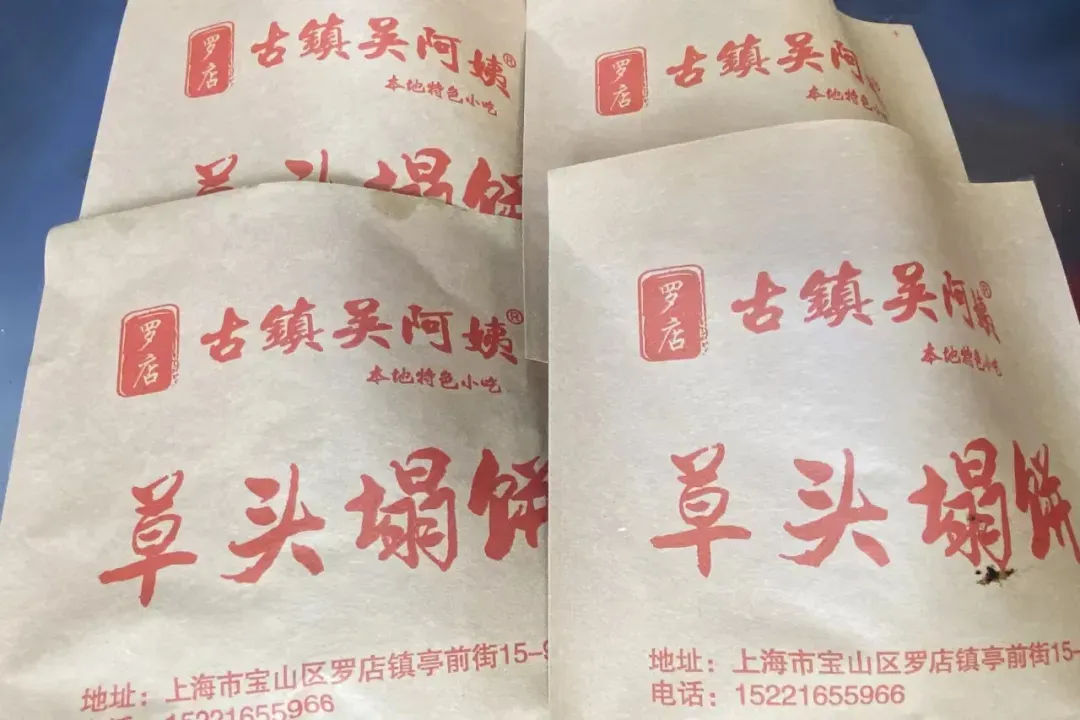 罗店
古鎮吴阿姨®
本地特色小吃
草头塌饼
罗店
古鎮吴阿姨
本地特色小吃
罗店
古鎮吴阿姨®
本地特色小吃
草头塌饼
地址：上海市宝山区罗店镇亭前街15-9
电话：15221655966
罗店
古鎮吴阿姨®
本地特色小吃
草头塌饼
地址：上海市宝山区罗店镇亭前街15
电话：15221655966